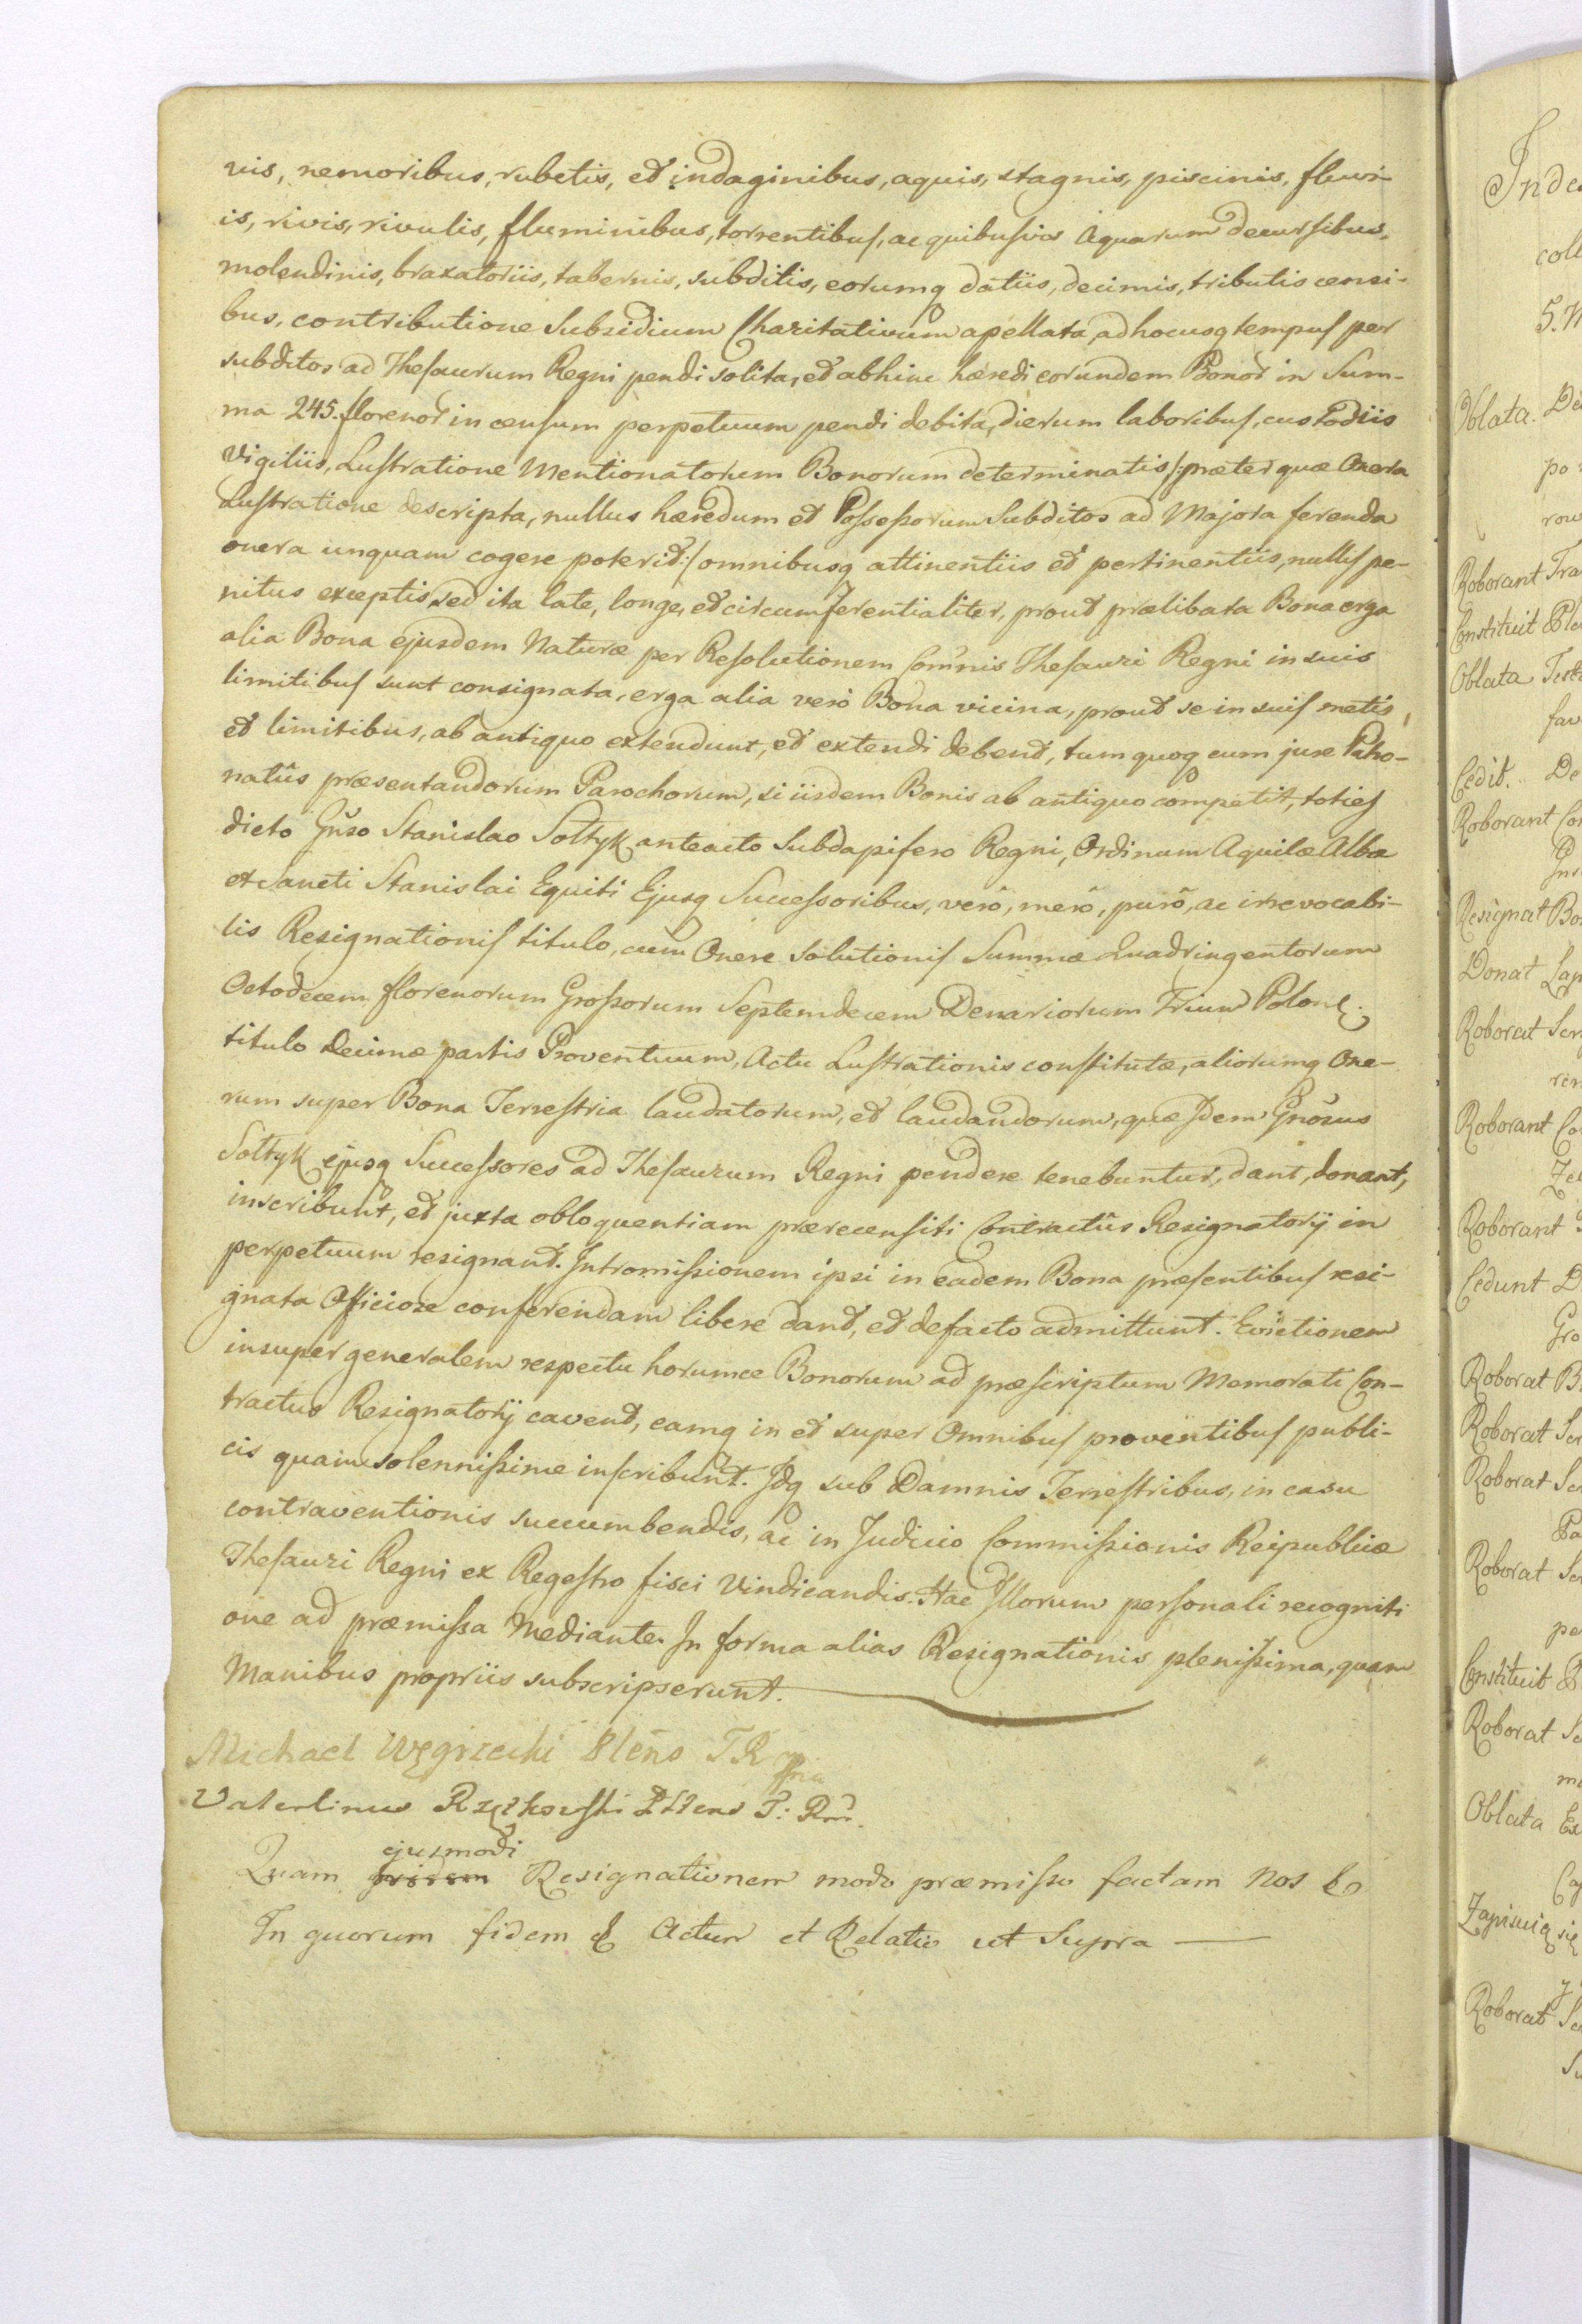 vis, nemoribus, rubetis, et indaginibus, aquis, stagnis, piscinis, fluvi-
is, rivis, rivulis, fluminibus, torrentibus, ac quibusvis Aquarum decursibus,
molendinis, braxatoriis, tabernis, subditis, eorumq datiis, decimis, tributis censi-
bus, contributione Subsidium Charitativum apellata, adhocusq tempus per
subditos ad Thesaurum Regni pendi solita, et abhinc hæredi eorundem Bonor in Sum-
ma 245. florenor in censum perpetuum pendi debita, dierum laboribus, custodiis
vigiliis, Lustratione Mentionatorum Bonorum determinatis /: præter quæ Onera
Lustratione descripta, nullus hæredum et Possessorum Subditos ad Majora ferenda
onera unquam cogere poterit :/ omnibusq attinentiis et pertinentiis, nullis pe-
nitus exceptis, sed ita late, longe, et circumferentialiter, prout prælibata Bona erga
alia Bona ejusdem Naturæ per Resolutionem Com̃nis Thesauri Regni in suis
limitibus sunt consignata, erga alia verò Bona vicina, prout se in suis metis,
et limitibus, ab antiquo extendunt, et extendi debent, tum quoq cum jure Patro-
natûs præsentandorum Parochorum, si iisdem Bonis ab antiquo competit, toties
dicto Gñso Stanislao Sołtyk anteacto Subdapifero Regni, Ordinum Aquilæ Albæ
et Sancti Stanislai Equiti Ejusq Successoribus, verô, merô, purô, ac irrevocabi-
lis Resignationis titulo, cum Onere solutionis Summæ Quadringentorum
Octodecem florenorum Grossorum Septemdecem Denariorum Trium Polonl.
titulo Decimæ partis Proventuum, Actu Lustrationis constitutæ, aliorumq One-
rum super Bona Terrestria laudatorum, et laudandorum, quæ Idem Gñosus
Sołtyk ejusq Successores ad Thesaurum Regni pendere tenebuntur, dant, donant,
inscribunt, et juxta obloquentiam prærecensiti Contractûs Resignatorij in
perpetuum resignant. Intromissionem ipsi in eadem Bona præsentibus resi-
gnata Officiose conferendam libere dant, et defacto admittunt. Evictionem
insuper generalem respectu horumce Bonorum ad præscriptum Memorati Con-
tractus Resignatorij cavent, eamq in et super Omnibus proventibus publi-
cis quam solennissime inscribunt. Idq sub Damnis Terrestribus, in casu
contraventionis succumbendis, ac in Judicio Commissionis Reipublicæ
Thesauri Regni ex Regestro fisci Vindicandis. Hac Illorum personali recogniti
one ad præmissa Mediante. In forma alias Resignationis plenissima, quam
Manibus propriis subscripserunt.
Michael Węgrzecki Plen̄s T R mpria
Valentinus
Quam quidem ejusmodi Resignationem modo præmisso factam Nos &
In quorum fidem & Actum et Relatio ut Supra —
Inde
coll
5. M
Oblata. De
po
row
Roborant Tra
Constituit Ple
Oblata Test
fav
Cedit. De
Roborant Con
Resignat Bo
Donat Lap
Roborat Scr
rin
Roborant Co
Roborant
Cedunt D
Gro
Roborat B
Roborat Scr
Roborat Sc
Pa
Roborat Scr
pe
Constituit P
Roborat Sc
m
Oblata Ex
Cap
Zapisuią się
Roborat Sc
Su